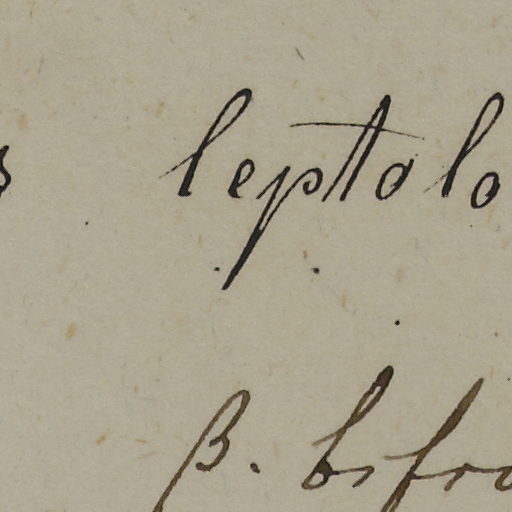 s leptolo
β. bifro